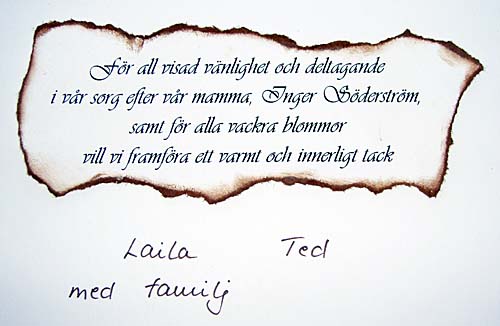 För all visad vänlighet och deltagande
i vår sorg efter vår mamma, Inger Söderström,
samt för alla vackra blommor
vill vi framföra ett varmt och innerligt tack
Laila Ted
med familj